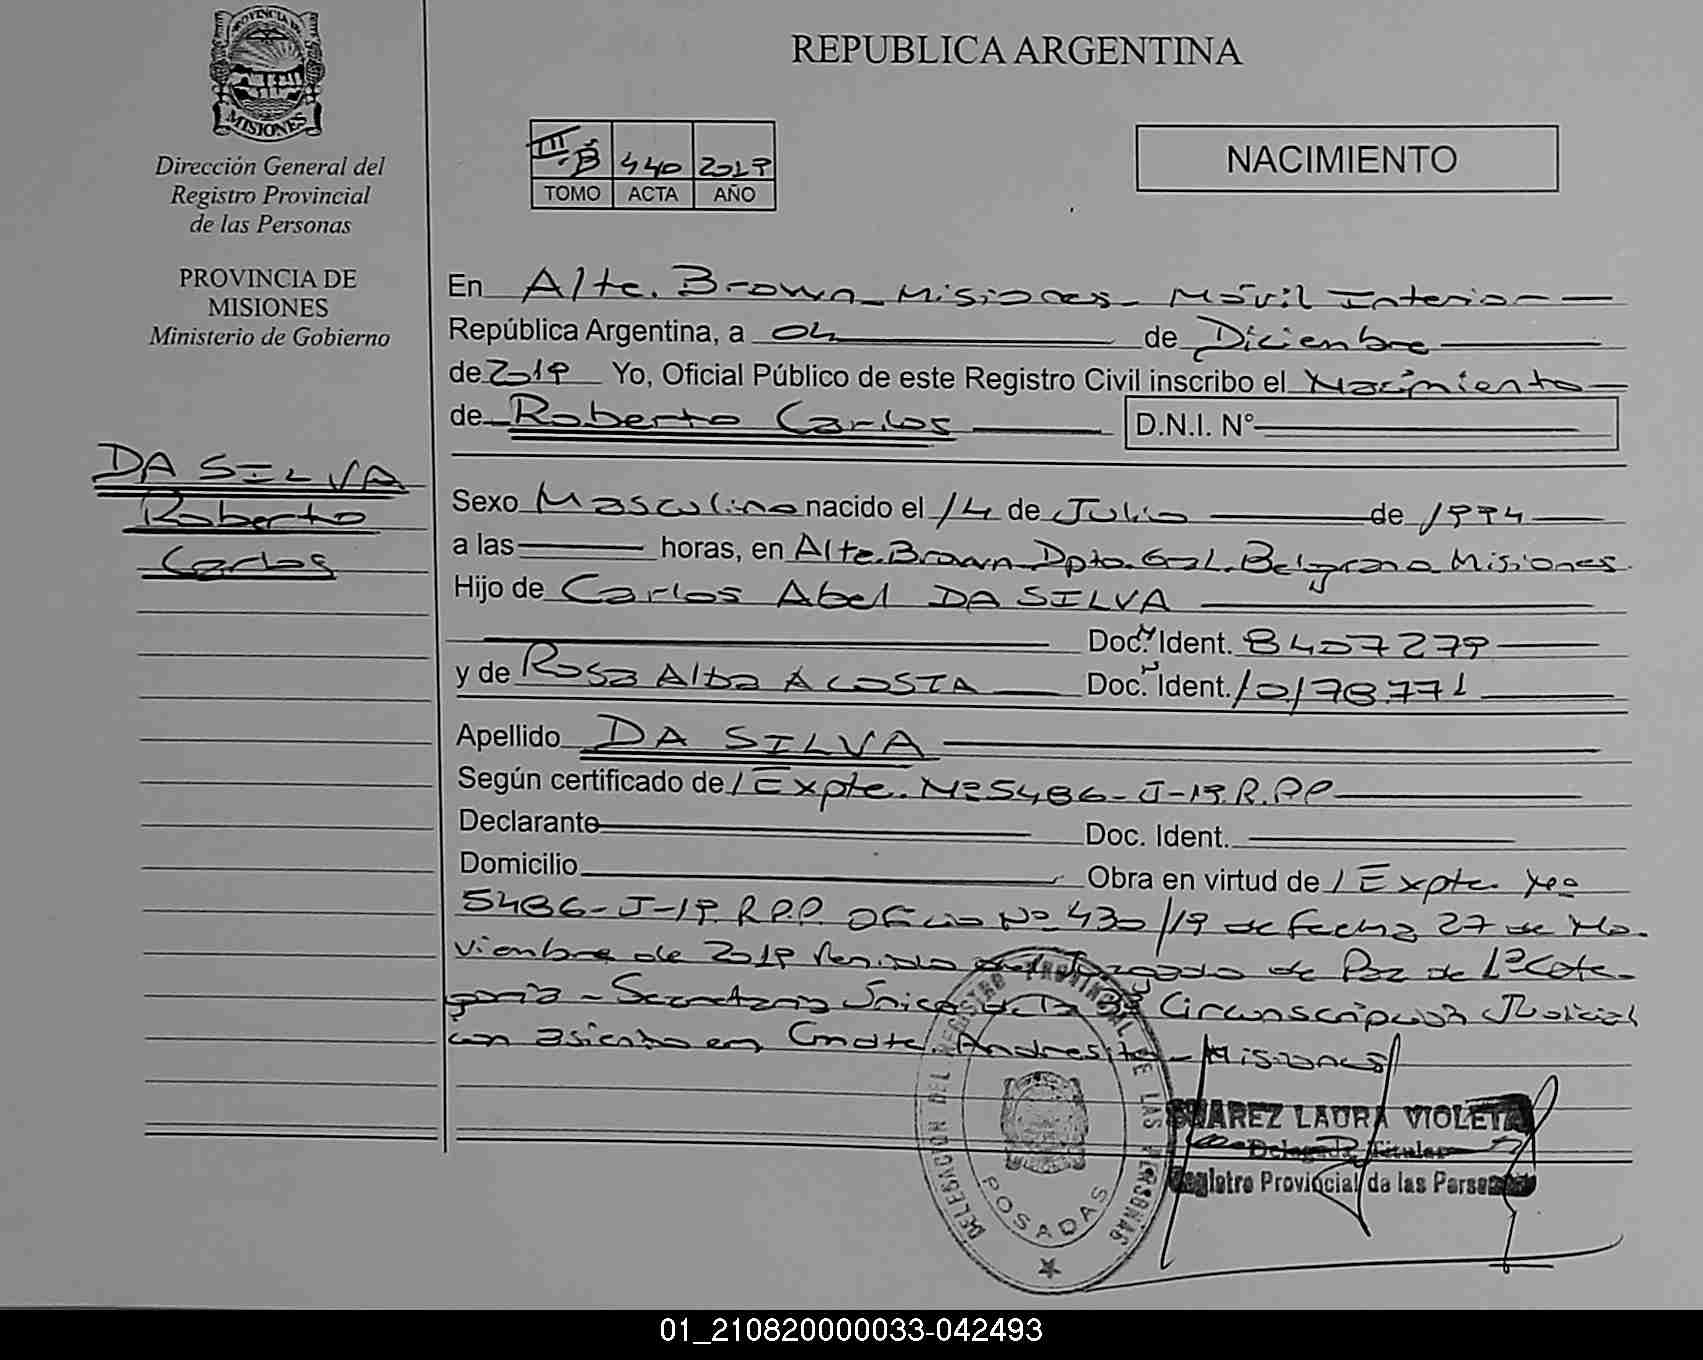 PROVINCIA DE
MISIONES
Dirección General del
Registro Provincial
de las Personas
PROVINCIA DE
MISIONES
Ministerio de Gobierno
DA SILVA
Roberto
Carlos
REPUBLICA ARGENTINA
III-B 440 2019
TOMO ACTA AÑO
NACIMIENTO
En Alte. Brown - Misiones - Móvil Interior
República Argentina, a 04 de Diciembre
de 2019 Yo, Oficial Público de este Registro Civil inscribo el Nacimiento
de Roberto Carlos D.N.I. N°
Sexo Masculino nacido el 14 de Julio de 1994
a las horas, en Alte. Brown Dpto. Gral. Belgrano Misiones.
Hijo de Carlos Abel DA SILVA
Doc. Ident. 8407279
y de Rosa Alba ACOSTA Doc. Ident. 10178.771
Apellido DA SILVA
Según certificado de / Expte. Nº 5486-J-19. R.P.P
Declarante Doc. Ident.
Domicilio Obra en virtud de / Expte. Nº
5486-J-19. R.P.P. Oficio Nº 430/19 de fecha 27 de No-
viembre de 2019 Juzgado de Paz de 1º Cate-
goria - Secretaria Única de la Circunscripción Judicial
con asiento en Cmdte. Andresito - Misiones
DELEGACION DEL REGISTRO PROVINCIAL DE LAS PERSONAS
POSADAS
SUAREZ LAURA VIOLETA
Delegada Titular
Registro Provincial de las Personas
01_210820000033-042493